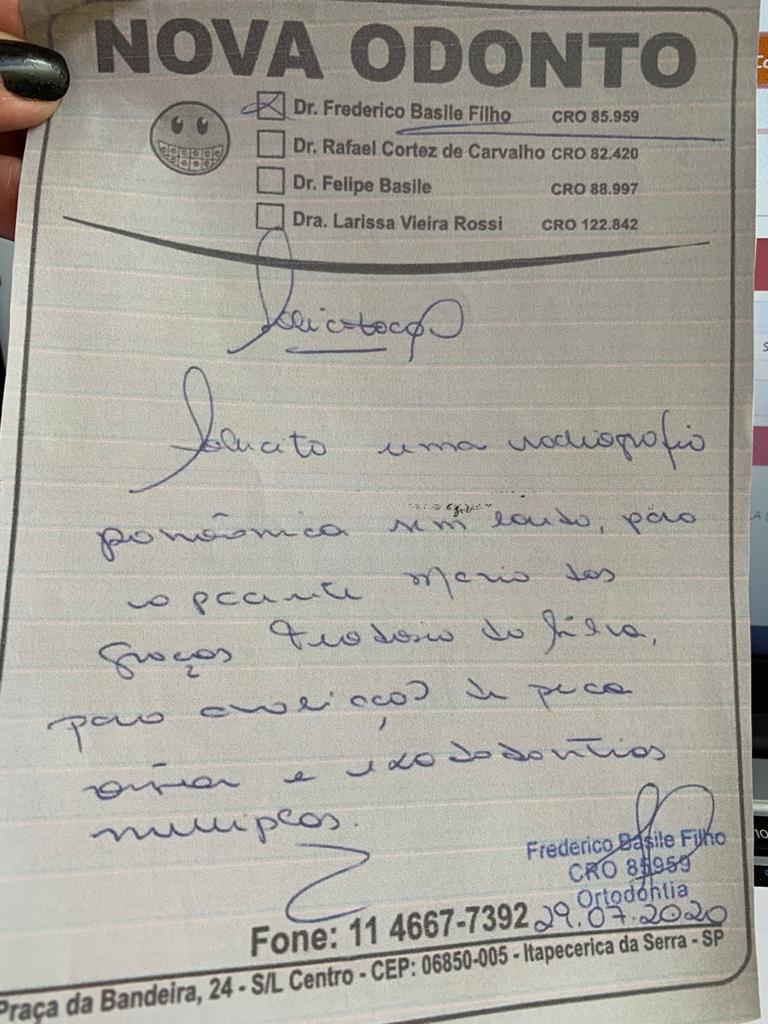 NOVA ODONTO
Dr. Frederico Basile Filho CRO 85.959
Dr. Rafael Cortez de Carvalho CRO 82.420
Dr. Felipe Basile CRO 88.997
Dra. Larissa Vieira Rossi CRO 122.842
Solicitação
Solicito uma radiografia
panorâmica sem laudo, para
a paciente Maria das
Graças Teodosio da Silva,
para avaliação de peça
e exodontias
multiplas.
Frederico Basile Filho
CRO 85959
Ortodontia
29.07.2020
Fone: 11 4667-7392
Praça da Bandeira, 24 - S/L Centro - CEP: 06850-005 - Itapecerica da Serra - SP